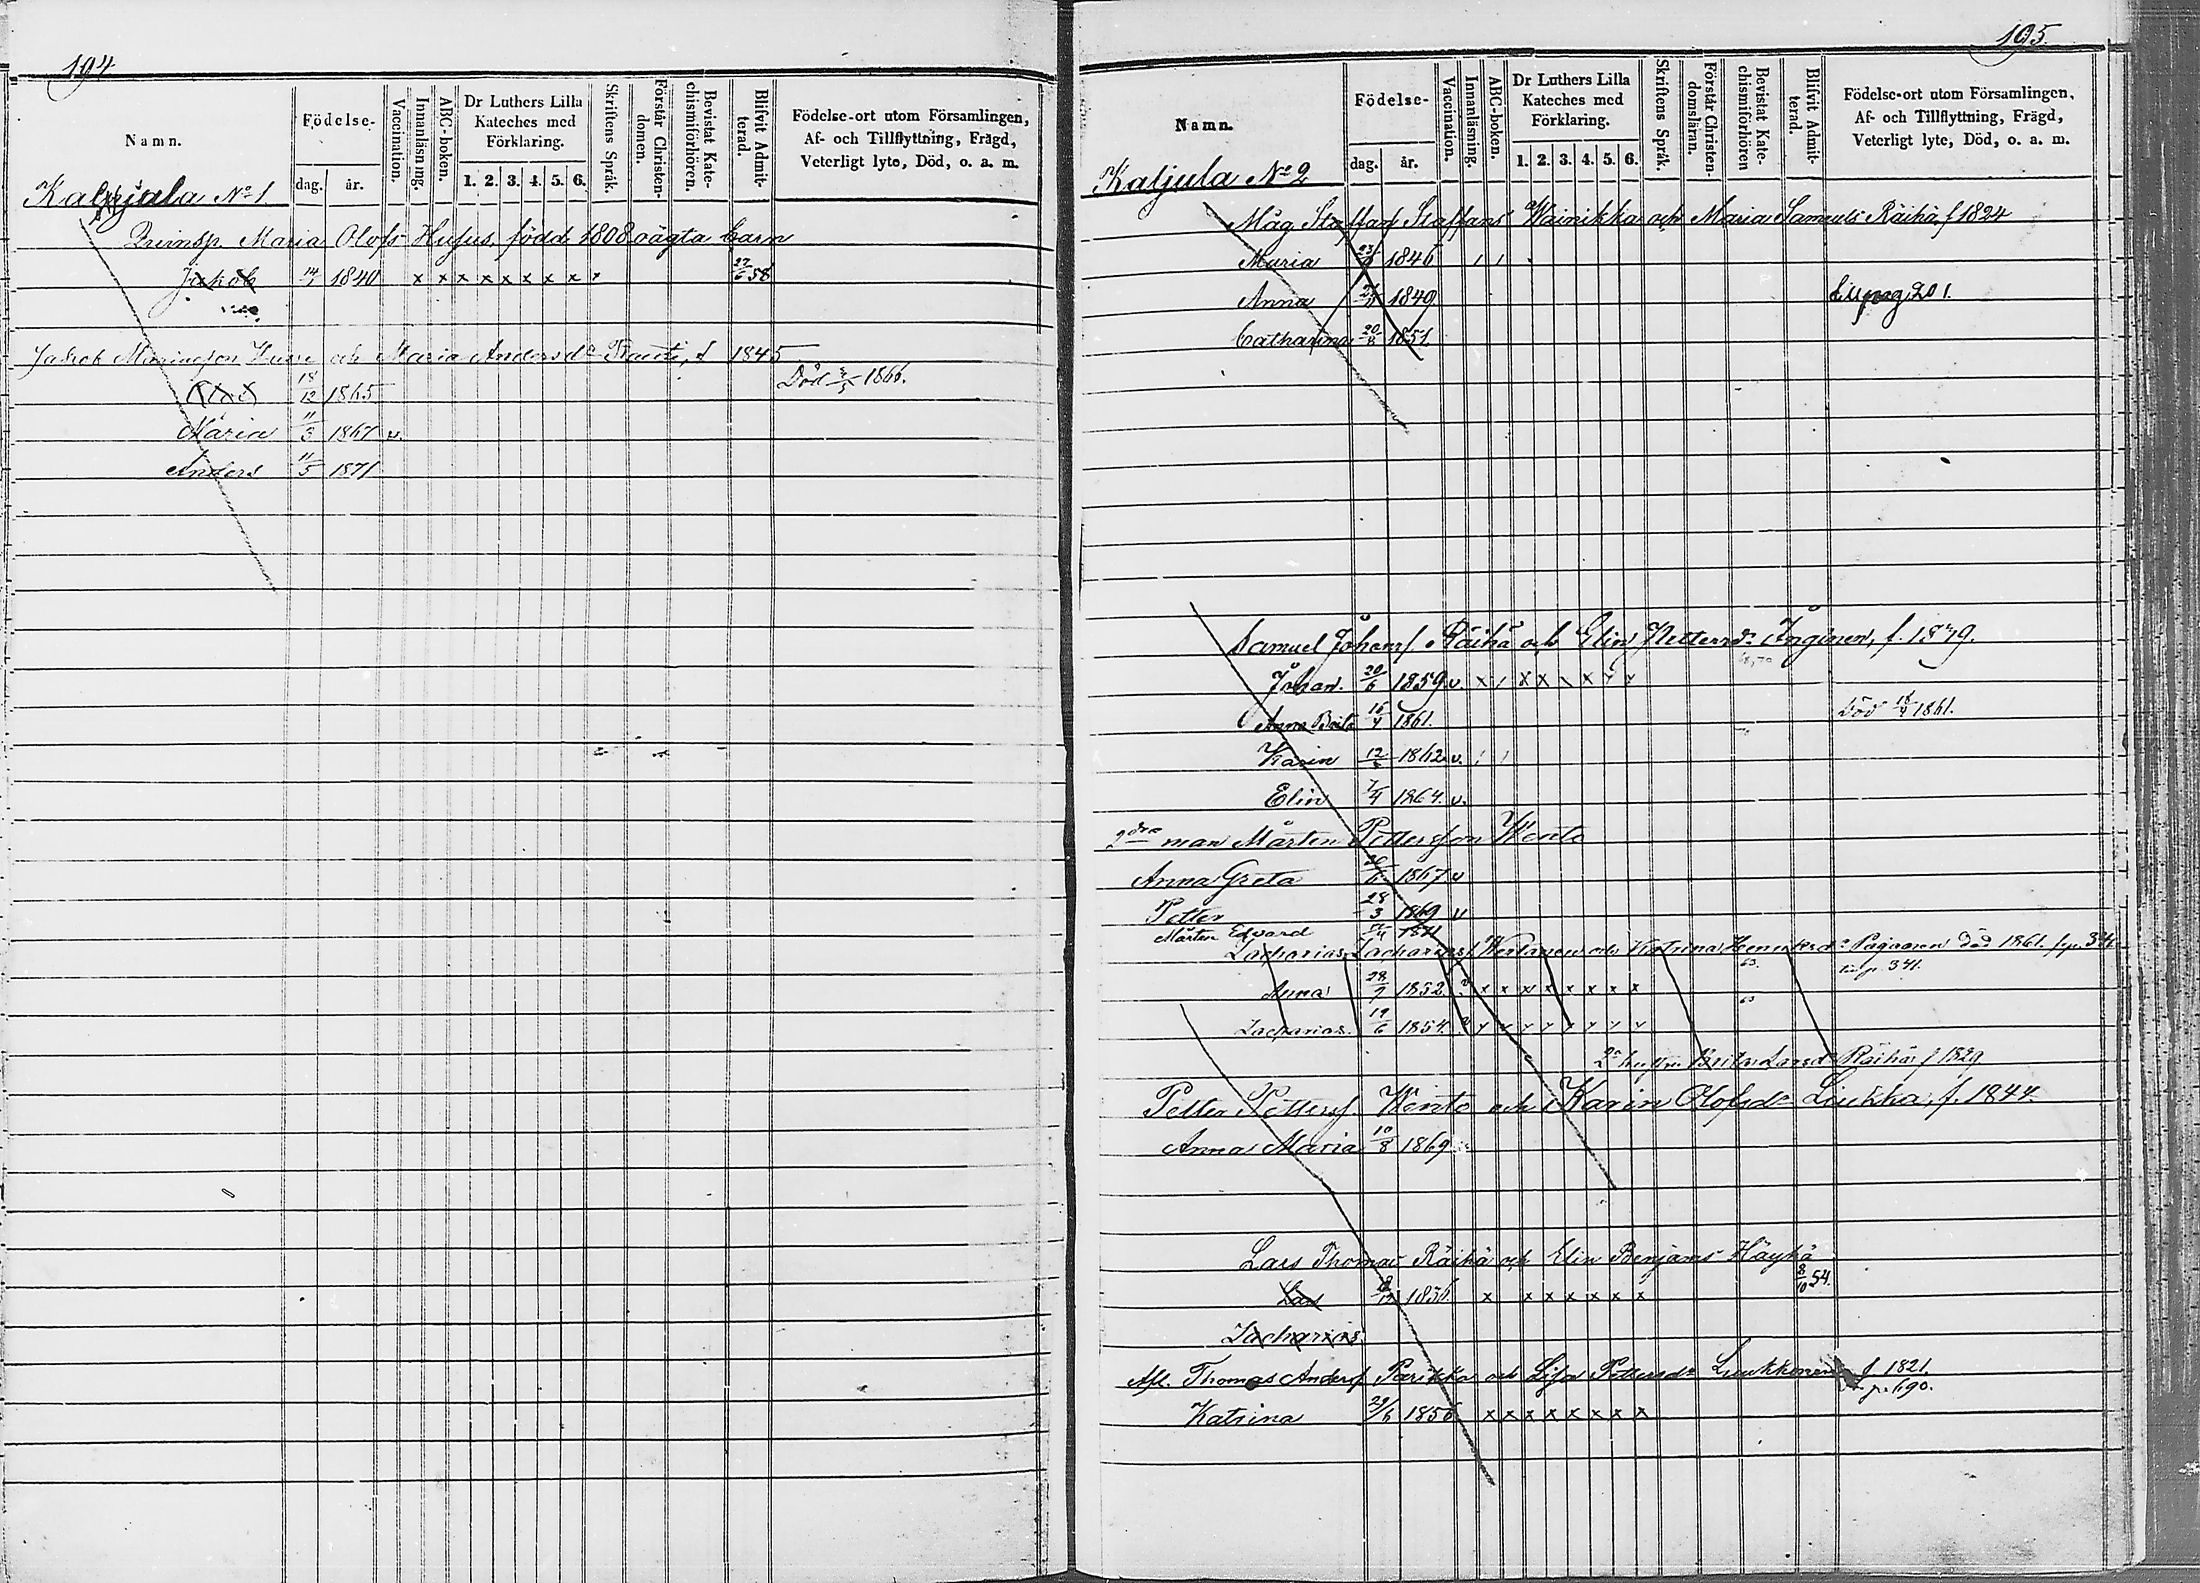 194
Namn.
Födelse-
dag. år.
Vaccination.
Innanläsning.
ABC-boken.
Dr Luthers Lilla Kateches med Förklaring.
1. 2. 3. 4. 5. 6.
Skriftens Språk.
Förstår Christendomen.
Bevistat Katechismiförhören.
Blifvit Admitterad.
Födelse-ort utom Församlingen, Af- och Tillflyttning, Frägd, Veterligt lyte, Död, o. a. m.
No 1.
Maria Olofs Husus, född 1808 oägta barn
Jakob 14/1 1840 x x x x x x x x x 27/6 58
Jakob och Maria Andersdr f 1845
18/12 1865 Död 1866.
Maria 11/3 1867 v.
Anders 11/5 1871
195.
Namn.
Födelse-
dag. år.
Vaccination.
Innanläsning.
ABC-boken.
Dr Luthers Lilla Kateches med Förklaring.
1. 2. 3. 4. 5. 6.
Skriftens Språk.
Förstår Christendomsläran.
Bevistat Katechismiförhören
Blifvit Admitterad.
Födelse-ort utom Församlingen, Af- och Tillflyttning, Frägd, Veterligt lyte, Död, o. a. m.
Kaljula No 2
Måg Staffan Staffans Wainikka och Maria Samuels Räihä, f 1824
Maria 1846
Anna 1849 pag 201.
Catharina 1851
Samuel Johans Räihä och Elin Pettersdr Inginen, f.
Johan. 20/6 1859 v. x / x x \ x x x
Anna Brita 16/4 1861. Död 1861.
Karin 1862 v.
Elin 7/4 1864. v.
2dra man Mårten Pettersson Wento
Anna Greta 1867 v
Petter 28/3 1869 v
Mårten Edvard
Zacharias Zacharias och Katrina död 1861.
p. 341.
Anna 1852 x x x x x x x x
Zacharias. 19/6 1854.
2a hustru Brita Larsdr Räihä f 1829
Petter Petters Wento och Karin Olofsdr Liukka, f. 1844.
Anna Maria 10/8 1869
Lars Thomas Räihä och Elin Benjams Häyhä
Lars 1856 x x x x x x x 8/10 54.
Zacharias
Thomas Anders Parikka och Lisa Pettersdr Liukkonen f 1821.
p. 690.
Katrina 29/6 1856 x x x x x x x x